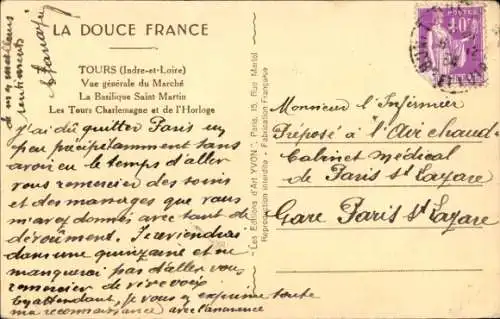 LA DOUCE FRANCE
TOURS (Indre-et-Loire)
Vue générale du Marché
La Basilique Saint Martin
Les Tours Charlemagne et de l'Horloge
J'ai dû quitter Paris un
peu précipitamment sans
avoir eu le temps d'aller
vous remercier des soins
et des massages que vous
m'avez donnés avec tant de
dévoûment. Je reviendrai
dans une quinzaine et ne
manquerai pas d'aller vous
remercier de vive voix
En attendant, je vous exprime toute
ma reconnaissance avec l'assurance
de mes meilleurs
sentiments
"Les Editions d'Art YVON", Paris, 15, Rue Martel
Reproduction interdite - Fabrication Française
POSTES
40c
Monsieur l'Infirmier
Préposé à l'Air chaud
Cabinet médical
de Paris St Lazare
Gare Paris St Lazare